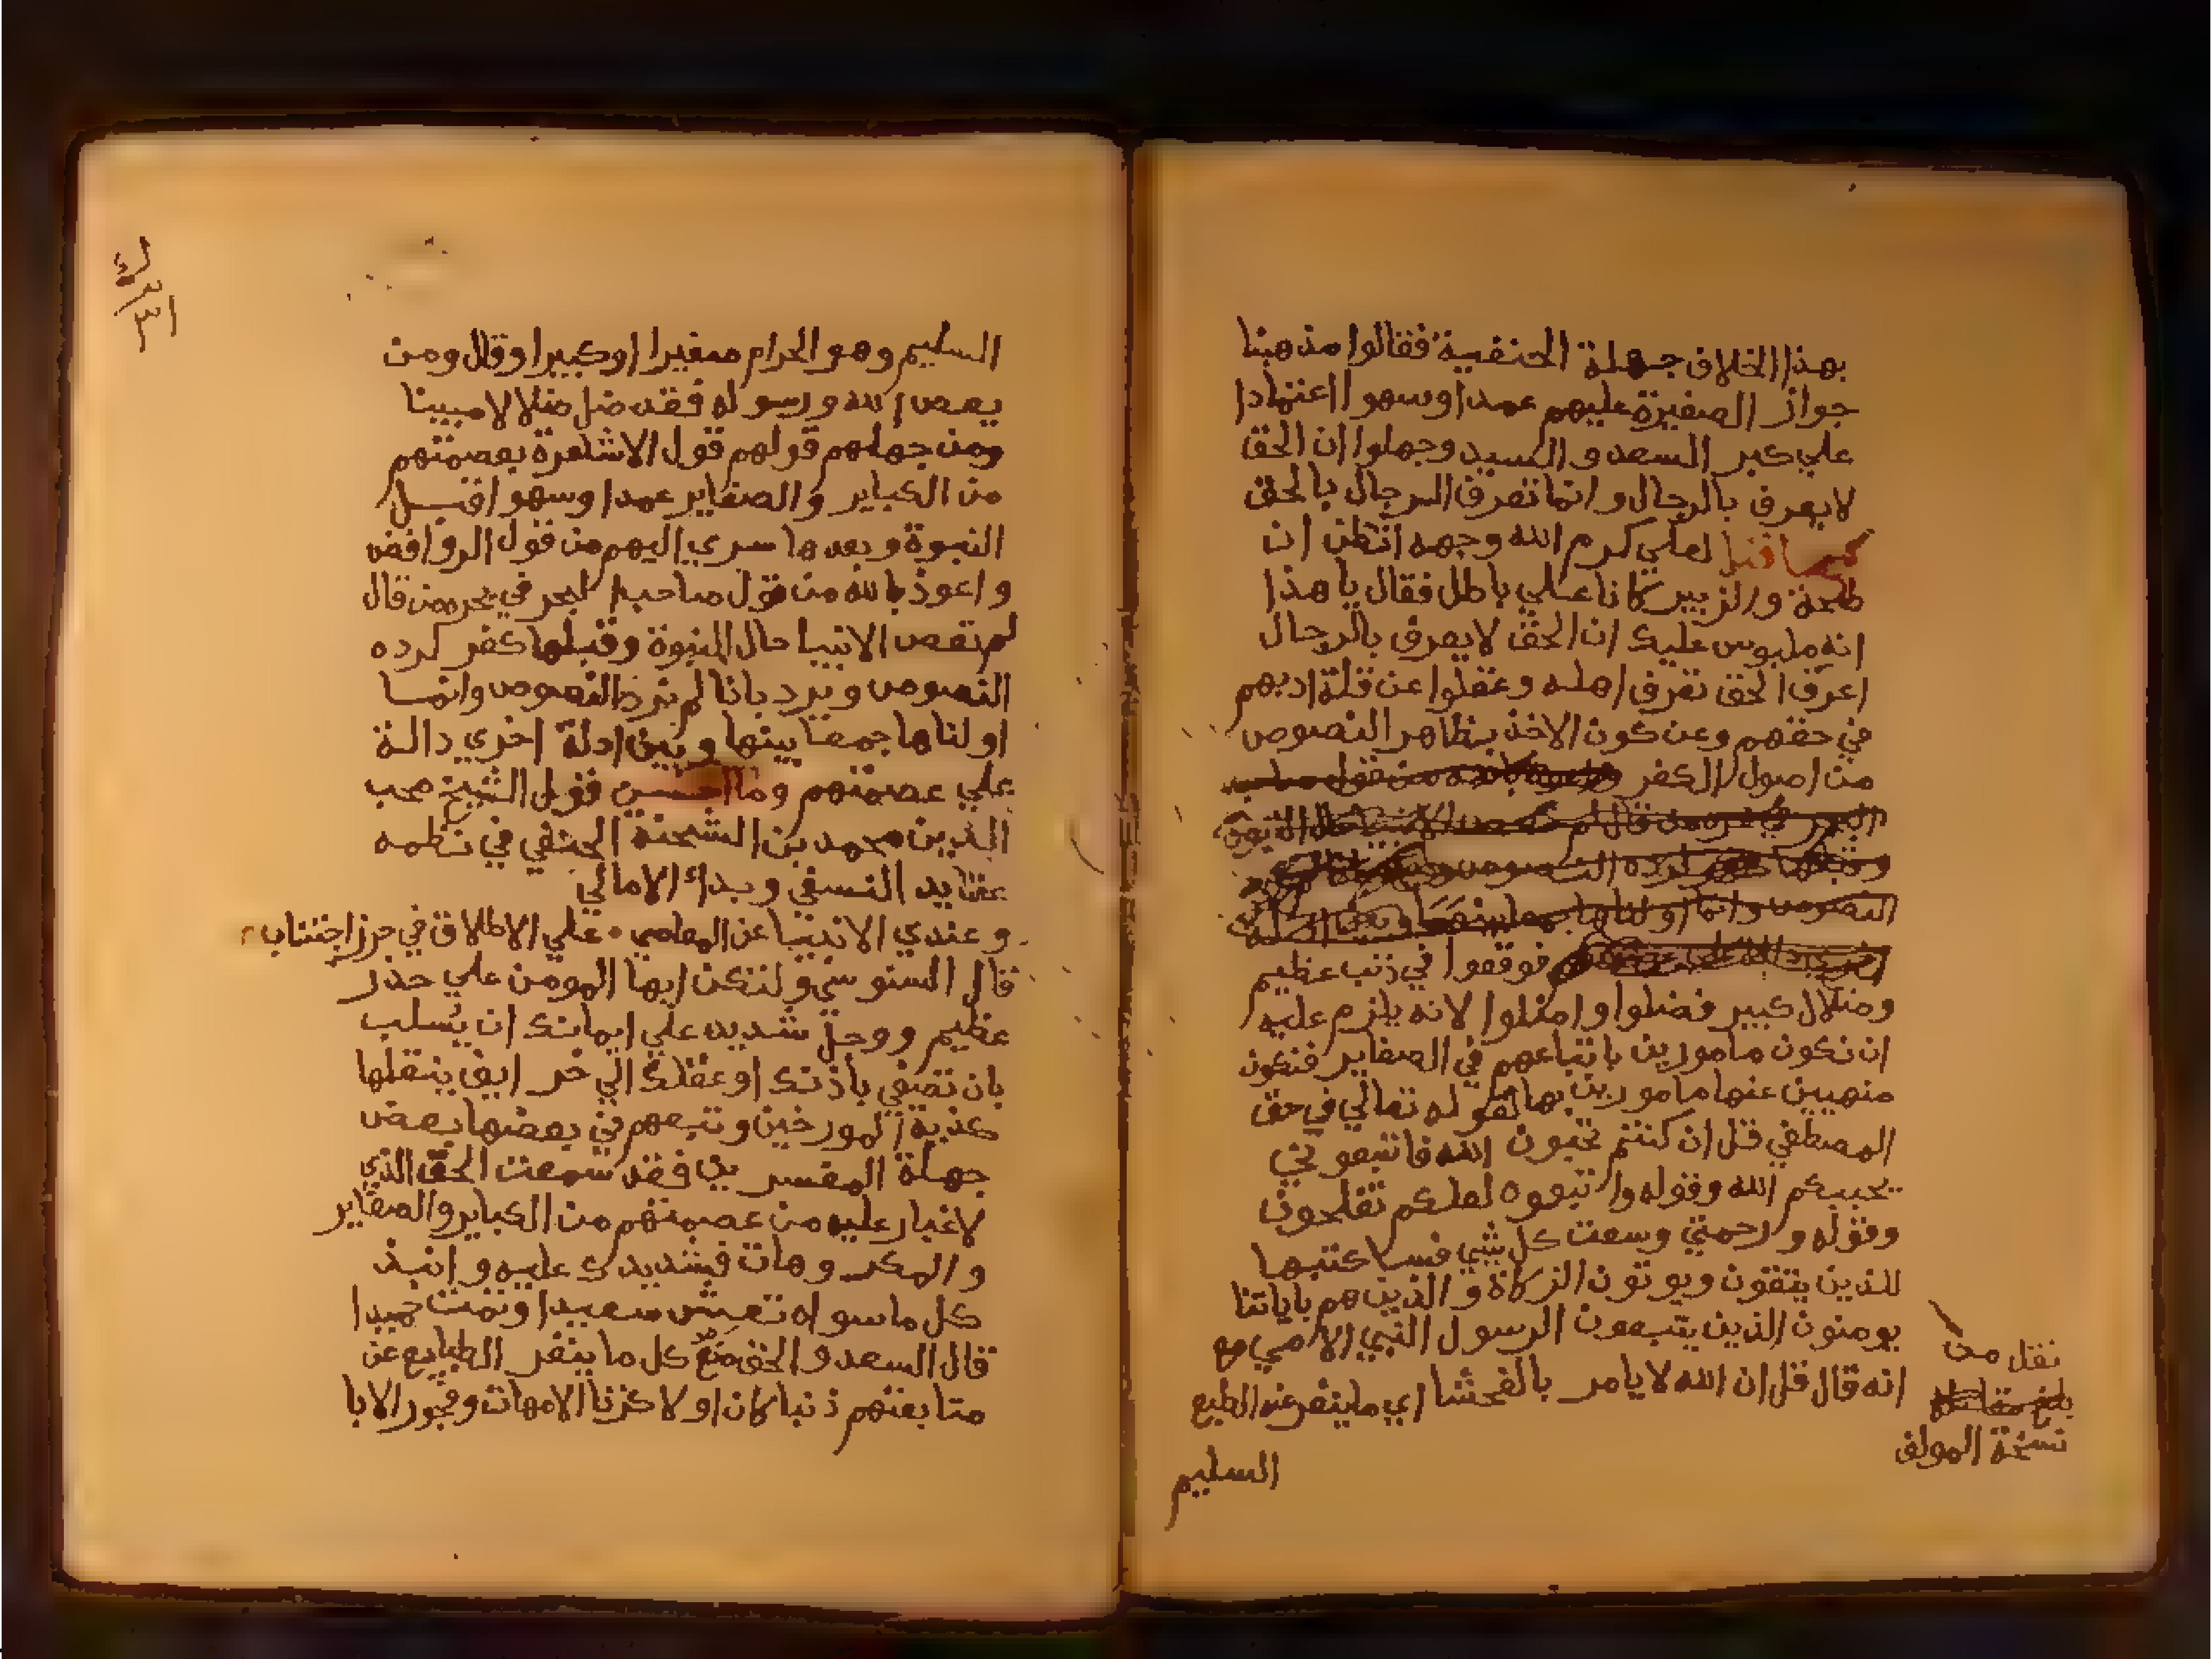 بهذا الخلاف جهلة الحنفية فقالوا مذهبنا
جواز الصغيرة عليهم عمدا وسهوا اعتمادا
علي كبر السعد والسيد وجهلوا ان الحق
لا يعرف بالرجال وانما تعرف الرجال بالحق
لعلي كرم الله وجهه اتظن ان
طلحة والزبير كانا علي باطل فقال يا هذا
انه ملبوس عليك ان الحق لا يعرف بالرجال
اعرف الحق تعرف اهله وغفلوا عن قلة ادبهم
في حقهم وعن كون الاخذ بظاهر النصوص
من اصول الكفر
فوقعوا في ذنب عظيم
وضلال كبير فضلوا وأضلوا لانه يلزم عليه
ان نكون مامورين باتباعهم في الصغاير فنكون
منهيين عنها مامورين بها لقوله تعالي في حق
المصطفي قل ان كنتم تحبون الله فاتبعوني
يحببكم الله وقوله واتبعوه لعلكم تفلحون
وقوله ورحمتي وسعت كل شي فساكتبها
للذين يتقون ويوتون الزكاة والذين هم باياتنا
يومنون الذين يتبعون الرسول النبي الامي مع
انه قال قل ان الله لا يامر بالفحشا اي ما ينفر عنه الطبع
السليم
نقل من
نسخة المولف
السليم وهو الحرام صغيرا اوكبيرا وقال ومن
يعص الله ورسوله فقد ضل ضلالا مبينا
ومن جهلهم قولهم قول الاشاعرة بعصمتهم
من الكباير والصغاير عمدا وسهوا قبل
النبوة وبعدها سري اليهم من قول الروافض
واعوذ بالله من قول صاحب البحر في بحره من قال
لم تعص الانبيا حال النبوة وقبلها كفر كرده
النصوص ويرد بانا لم نرد النصوص وانما
اولناها جمعا بينها وبين ادلة اخري دالة
علي عصمتهم وما احسن قول الشيخ محب
الدين محمد بن الشحنة الحنفي في نظمه
عقايد النسفي وبدا الامالي
وعندي الانبيا عن المعاصي علي الاطلاق في حرز اجتناب
قال السنوسي ولتكن ايها المومن علي حذر
عظيم ووجل شديد علي ايمانك ان يسلب
بان تصغي باذنك او عقلك الي خرايف ينقلها
كذبة المورخين وتبعهم في بعضها بعض
جهلة المفسرين فقد سمعت الحق الذي
لا غبار عليه من عصمتهم من الكباير والصغاير
والمكر وهات فشد يدك عليه وانبذ
كل ما سواه تعش سعيدا وتمت حميدا
قال السعد والحق منع كل ما ينفر الطبايع عن
متابعتهم ذنبا كان او لا كزنا الامهات وفجور الابا